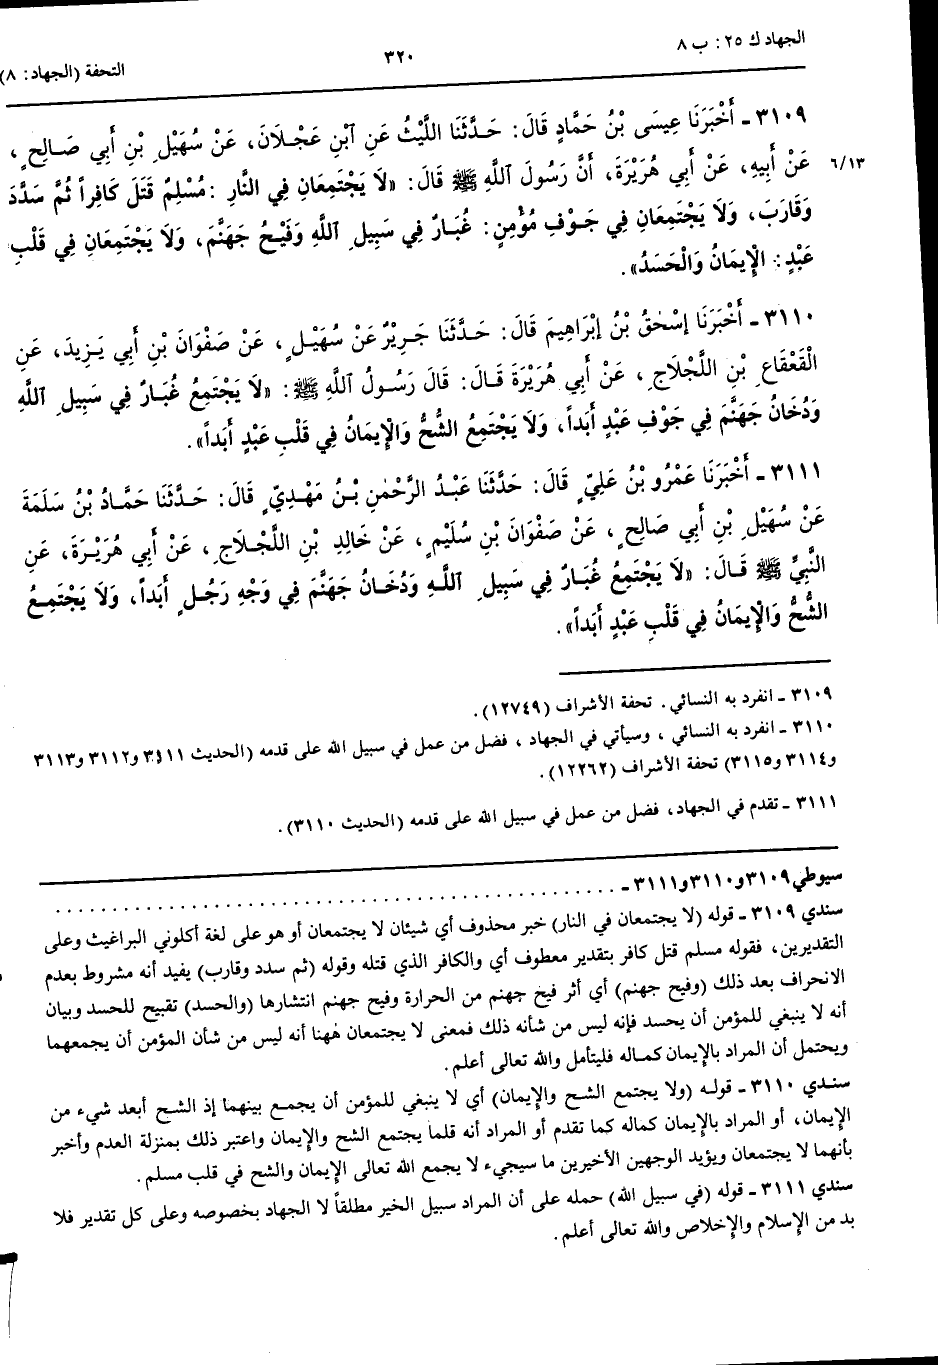 الجهاد ك ٢٥: ب ٨
٣٢٠
التحفة (الجهاد: ٨)
٣١٠٩ - أَخْبَرَنَا عِيسَى بْنُ حَمَّادٍ قَالَ: حَدَّثَنَا اللَّيْثُ عَنِ ٱبْنِ عَجْلَانَ، عَنْ سُهَيْلِ بْنِ أَبِي صَالِحٍ،
٦/١٣
عَنْ أَبِيهِ، عَنْ أَبِي هُرَيْرَةَ، أَنَّ رَسُولَ ٱللَّهِ ﷺ قَالَ: «لَا يَجْتَمِعَانِ فِي النَّارِ: مُسْلِمٌ قَتَلَ كَافِراً ثُمَّ سَدَّدَ
وَقَارَبَ، وَلَا يَجْتَمِعَانِ فِي جَوْفِ مُؤْمِنٍ: غُبَارٌ فِي سَبِيلِ ٱللَّهِ وَفَيْحُ جَهَنَّمَ، وَلَا يَجْتَمِعَانِ فِي قَلْبِ
عَبْدٍ: الْإِيمَانُ وَالْحَسَدُ».
٣١١٠ - أَخْبَرَنَا إِسْحٰقُ بْنُ إِبْرَاهِيمَ قَالَ: حَدَّثَنَا جَرِيرٌ عَنْ سُهَيْلٍ، عَنْ صَفْوَانَ بْنِ أَبِي يَزِيدَ، عَنِ
الْقَعْقَاعِ بْنِ اللَّجْلَاجِ، عَنْ أَبِي هُرَيْرَةَ قَالَ: قَالَ رَسُولُ ٱللَّهِ ﷺ: «لَا يَجْتَمِعُ غُبَارٌ فِي سَبِيلِ ٱللَّهِ
وَدُخَانُ جَهَنَّمَ فِي جَوْفِ عَبْدٍ أَبَداً، وَلَا يَجْتَمِعُ الشُّحُّ وَالْإِيمَانُ فِي قَلْبِ عَبْدٍ أَبَداً».
٣١١١ - أَخْبَرَنَا عَمْرُو بْنُ عَلِيٍّ قَالَ: حَدَّثَنَا عَبْدُ الرَّحْمٰنِ بْنُ مَهْدِيٍّ قَالَ: حَدَّثَنَا حَمَّادُ بْنُ سَلَمَةَ
عَنْ سُهَيْلِ بْنِ أَبِي صَالِحٍ، عَنْ صَفْوَانَ بْنِ سُلَيْمٍ، عَنْ خَالِدِ بْنِ اللَّجْلَاجِ، عَنْ أَبِي هُرَيْرَةَ، عَنِ
النَّبِيِّ ﷺ قَالَ: «لَا يَجْتَمِعُ غُبَارٌ فِي سَبِيلِ ٱللَّهِ وَدُخَانُ جَهَنَّمَ فِي وَجْهِ رَجُلٍ أَبَداً، وَلَا يَجْتَمِعُ
الشُّحُّ وَالْإِيمَانُ فِي قَلْبِ عَبْدٍ أَبَداً».
٣١٠٩ - انفرد به النسائي. تحفة الأشراف (١٢٧٤٩).
٣١١٠ - انفرد به النسائي، وسيأتي في الجهاد، فضل من عمل في سبيل الله على قدمه (الحديث ٣١١١ و٣١١٢ و٣١١٣
و٣١١٤ و٣١١٥) تحفة الأشراف (١٢٢٦٢).
٣١١١ - تقدم في الجهاد، فضل من عمل في سبيل الله على قدمه (الحديث ٣١١٠).
سيوطي ٣١٠٩ و٣١١٠ و٣١١١ - . . . . . . . . . . . . . . . . . . . . . . . . . . . . . . . .
سندي ٣١٠٩ - قوله (لا يجتمعان في النار) خبر محذوف أي شيئان لا يجتمعان أو هو على لغة أكلوني البراغيث وعلى
التقديرين، فقوله مسلم قتل كافر بتقدير معطوف أي والكافر الذي قتله وقوله (ثم سدد وقارب) يفيد أنه مشروط بعدم
الانحراف بعد ذلك (وفيح جهنم) أي أثر فيح جهنم من الحرارة وفيح جهنم انتشارها (والحسد) تقبيح للحسد وبيان
أنه لا ينبغي للمؤمن أن يحسد فإنه ليس من شأنه ذلك فمعنى لا يجتمعان هٰهنا أنه ليس من شأن المؤمن أن يجمعهما
ويحتمل أن المراد بالإيمان كماله فليتأمل والله تعالى أعلم.
سندي ٣١١٠ - قوله (ولا يجتمع الشح والإيمان) أي لا ينبغي للمؤمن أن يجمع بينهما إذ الشح أبعد شيء من
الإيمان، أو المراد بالإيمان كماله كما تقدم أو المراد أنه قلما يجتمع الشح والإيمان واعتبر ذلك بمنزلة العدم وأخبر
بأنهما لا يجتمعان ويؤيد الوجهين الأخيرين ما سيجيء لا يجمع الله تعالى الإيمان والشح في قلب مسلم.
سندي ٣١١١ - قوله (في سبيل الله) حمله على أن المراد سبيل الخير مطلقاً لا الجهاد بخصوصه وعلى كل تقدير فلا
بد من الإسلام والإخلاص والله تعالى أعلم.